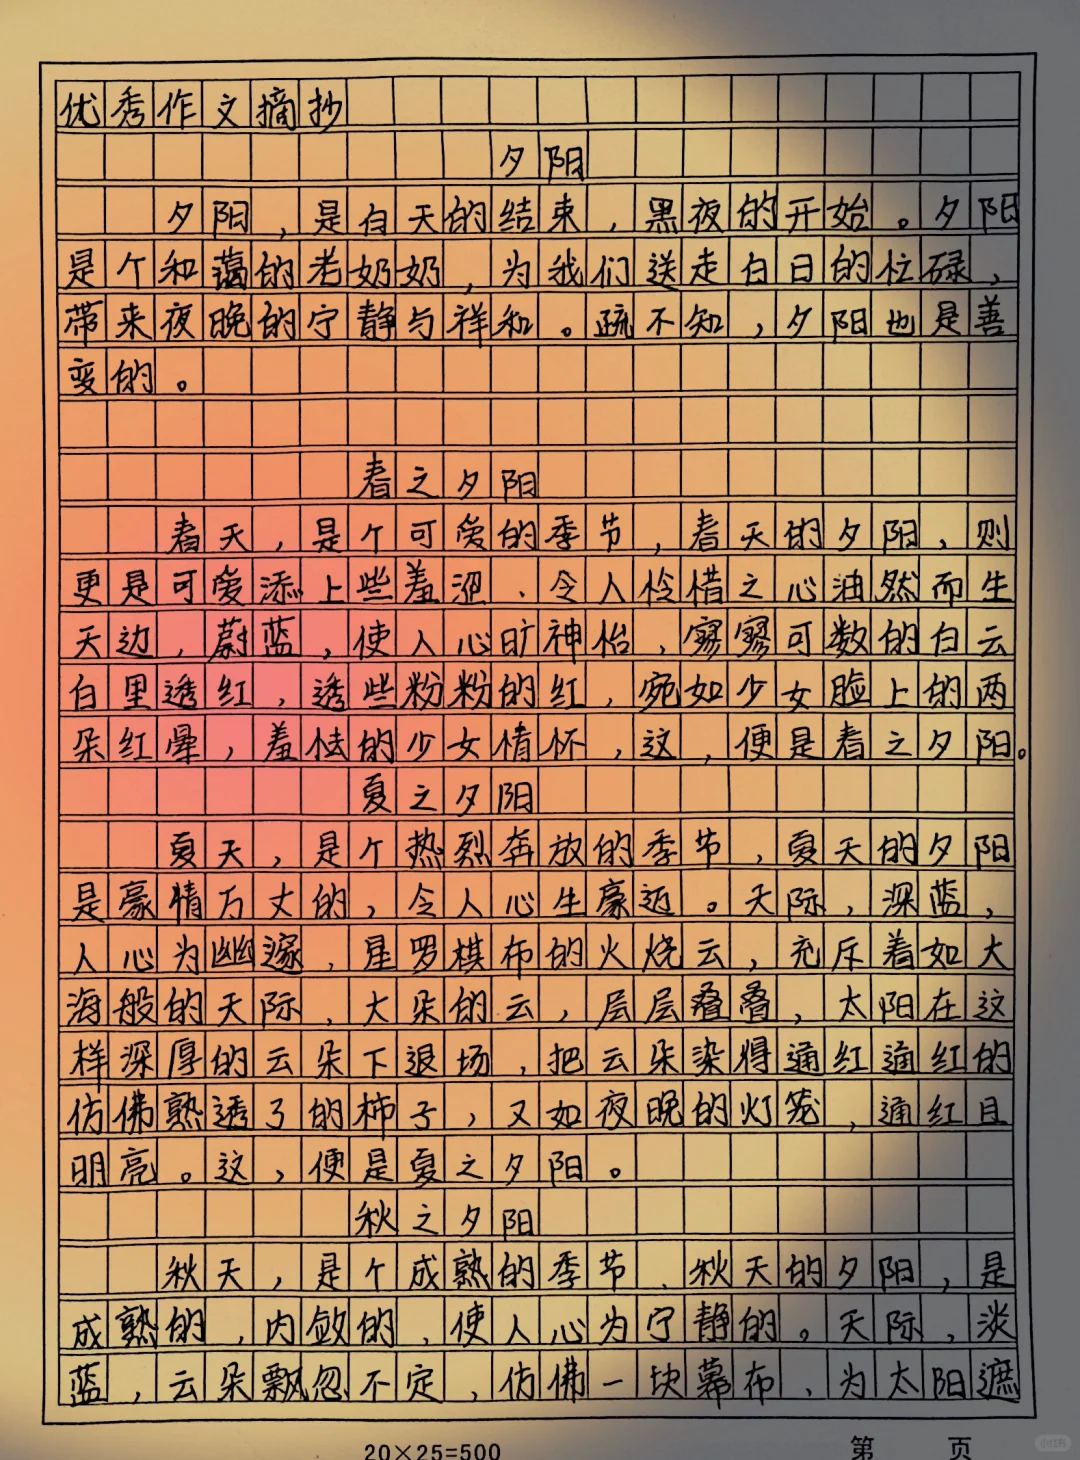 优秀作文摘抄
夕阳
夕阳，是白天的结束，黑夜的开始。夕阳
是个和蔼的老奶奶，为我们送走白日的忙碌，
带来夜晚的宁静与祥和。疏不知，夕阳也是善
变的。
春之夕阳
春天，是个可爱的季节，春天的夕阳，则
更是可爱添上些羞涩、令人怜惜之心油然而生
天边，蔚蓝，使人心旷神怡，寥寥可数的白云
白里透红，透些粉粉的红，宛如少女脸上的两
朵红晕，羞怯的少女情怀，这，便是春之夕阳。
夏之夕阳
夏天，是个热烈奔放的季节，夏天的夕阳
是豪情万丈的，令人心生豪迈。天际，深蓝，
人心为幽邃，星罗棋布的火烧云，充斥着如大
海般的天际，大朵的云，层层叠叠，太阳在这
样深厚的云朵下退场，把云朵染得通红通红的
仿佛熟透了的柿子，又如夜晚的灯笼，通红且
明亮。这，便是夏之夕阳。
秋之夕阳
秋天，是个成熟的季节、秋天的夕阳，是
成熟的，内敛的，使人心为宁静的。天际，淡
蓝，云朵飘忽不定，仿佛一块幕布、为太阳遮
20×25=500
第 页
小红书